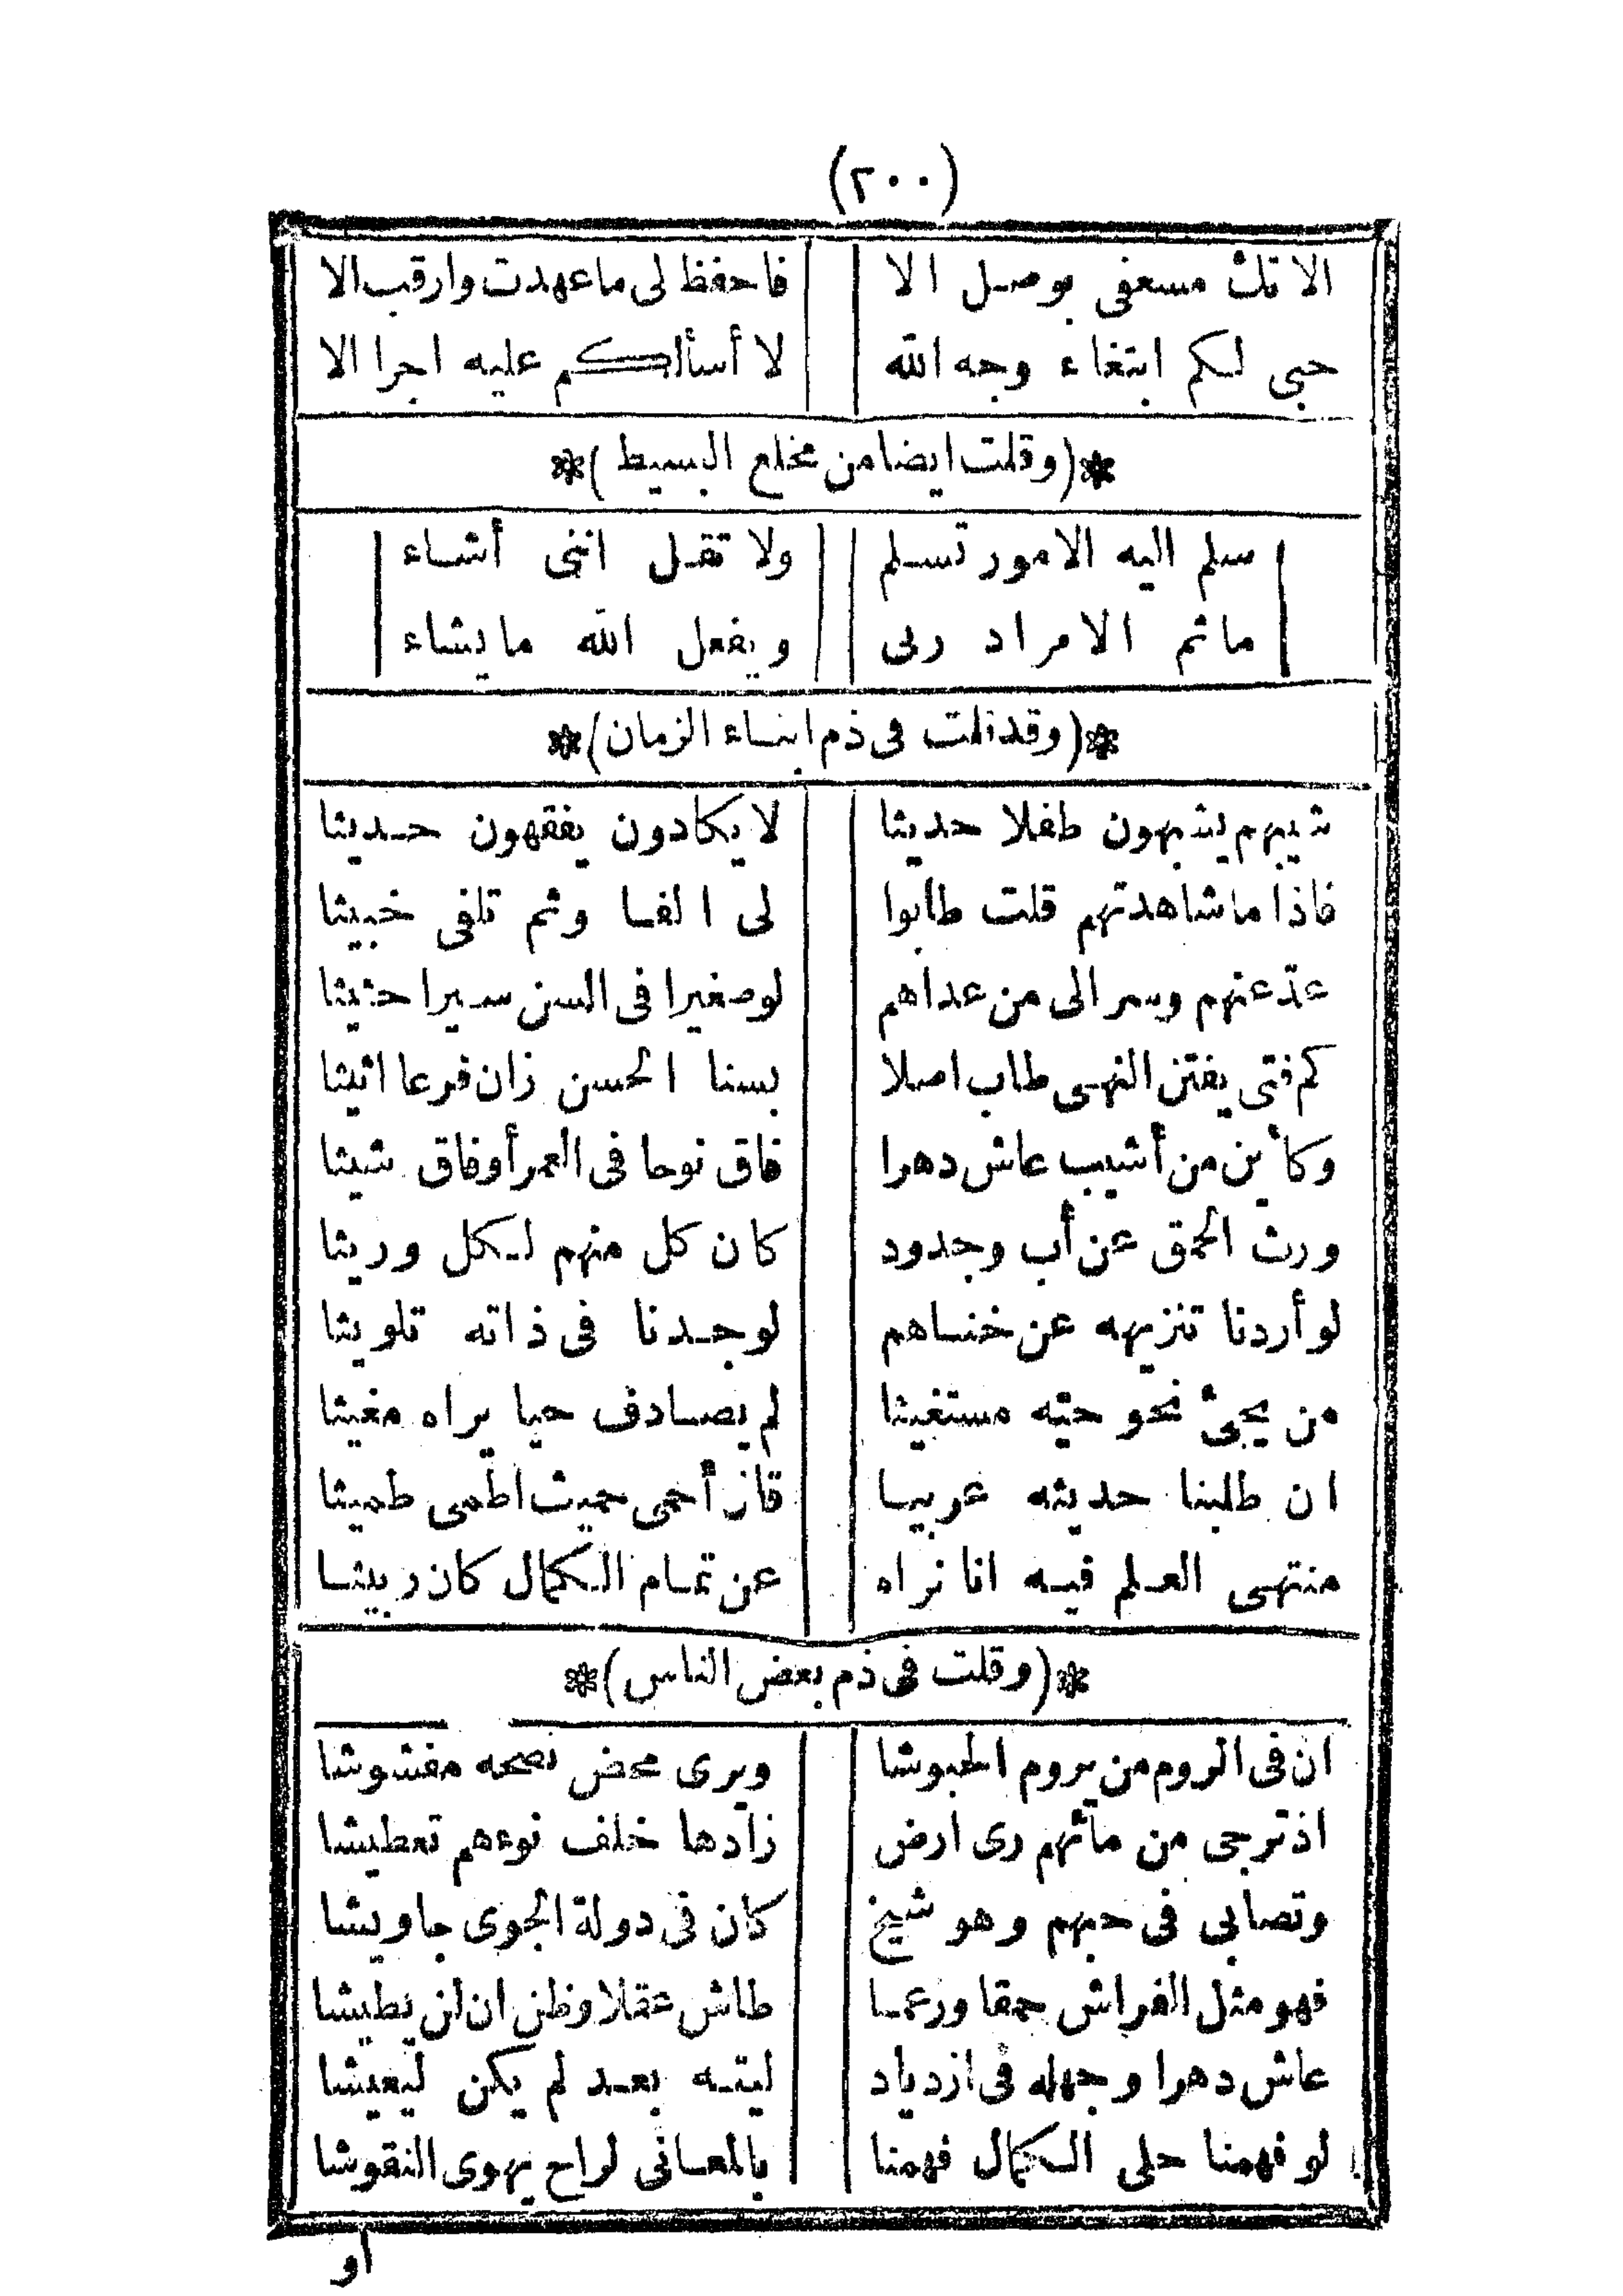 (٢٠٠)
الا تك مسعفى بوصل الا فاحفظ لى ماعهدت وارقب الا
حبى لكم ابتغاء وجه الله لا أسألكم عليه اجرا الا
*(وقلت ايضا من مخلع البسيط)*
سلم اليه الامور تسلم ولا تقل اننى أشاء
ماثم الا مراد ربى ويفعل الله مايشاء
*(وقد قلت فى ذم ابناء الزمان)*
شيبهم يشبهون طفلا حديثا لا يكادون يفقهون حديثا
فاذا ماشاهدتهم قلت طابوا لى الفا وثم تلفى خبيثا
عدّ عنهم وسر الى من عداهم لوصغيرا فى السن سيرا حثيثا
كم فتى يفتن النهى طاب اصلا بسنا الحسن زان فرعا اثيثا
وكأين من أشيب عاش دهرا فاق نوحا فى العمر أوفاق شيثا
ورث الحمق عن أب وجدود كان كل منهم لكل وريثا
لو أردنا تنزيهه عن خناهم لوجدنا فى ذاته تلويثا
من يجئ نحو حيّه مستغيثا لم يصادف حيا يراه مغيثا
ان طلبنا حديثه عربيا قان أحمى حميث اطمى طميثا
منتهى العلم فيه انا نراه عن تمام الكمال كان ريثا
*(وقلت فى ذم بعض الناس)*
ان فى الروم من يروم الحبوشا ويرى محض نصحه مغشوشا
اذترجى من مائهم رى ارض زادها خلف نوءهم تعطيشا
وتصابى فى حبهم وهو شيخ كان فى دولة الجوى جاويشا
فهو مثل الفراش حمقا وزعما طاش عقلا وظن ان لن يطيشا
عاش دهرا وجهله فى ازدياد ليته بعد لم يكن ليعيشا
لو فهمنا حلى الكمال فهمنا بالمعانى لراح يهوى النقوشا
او